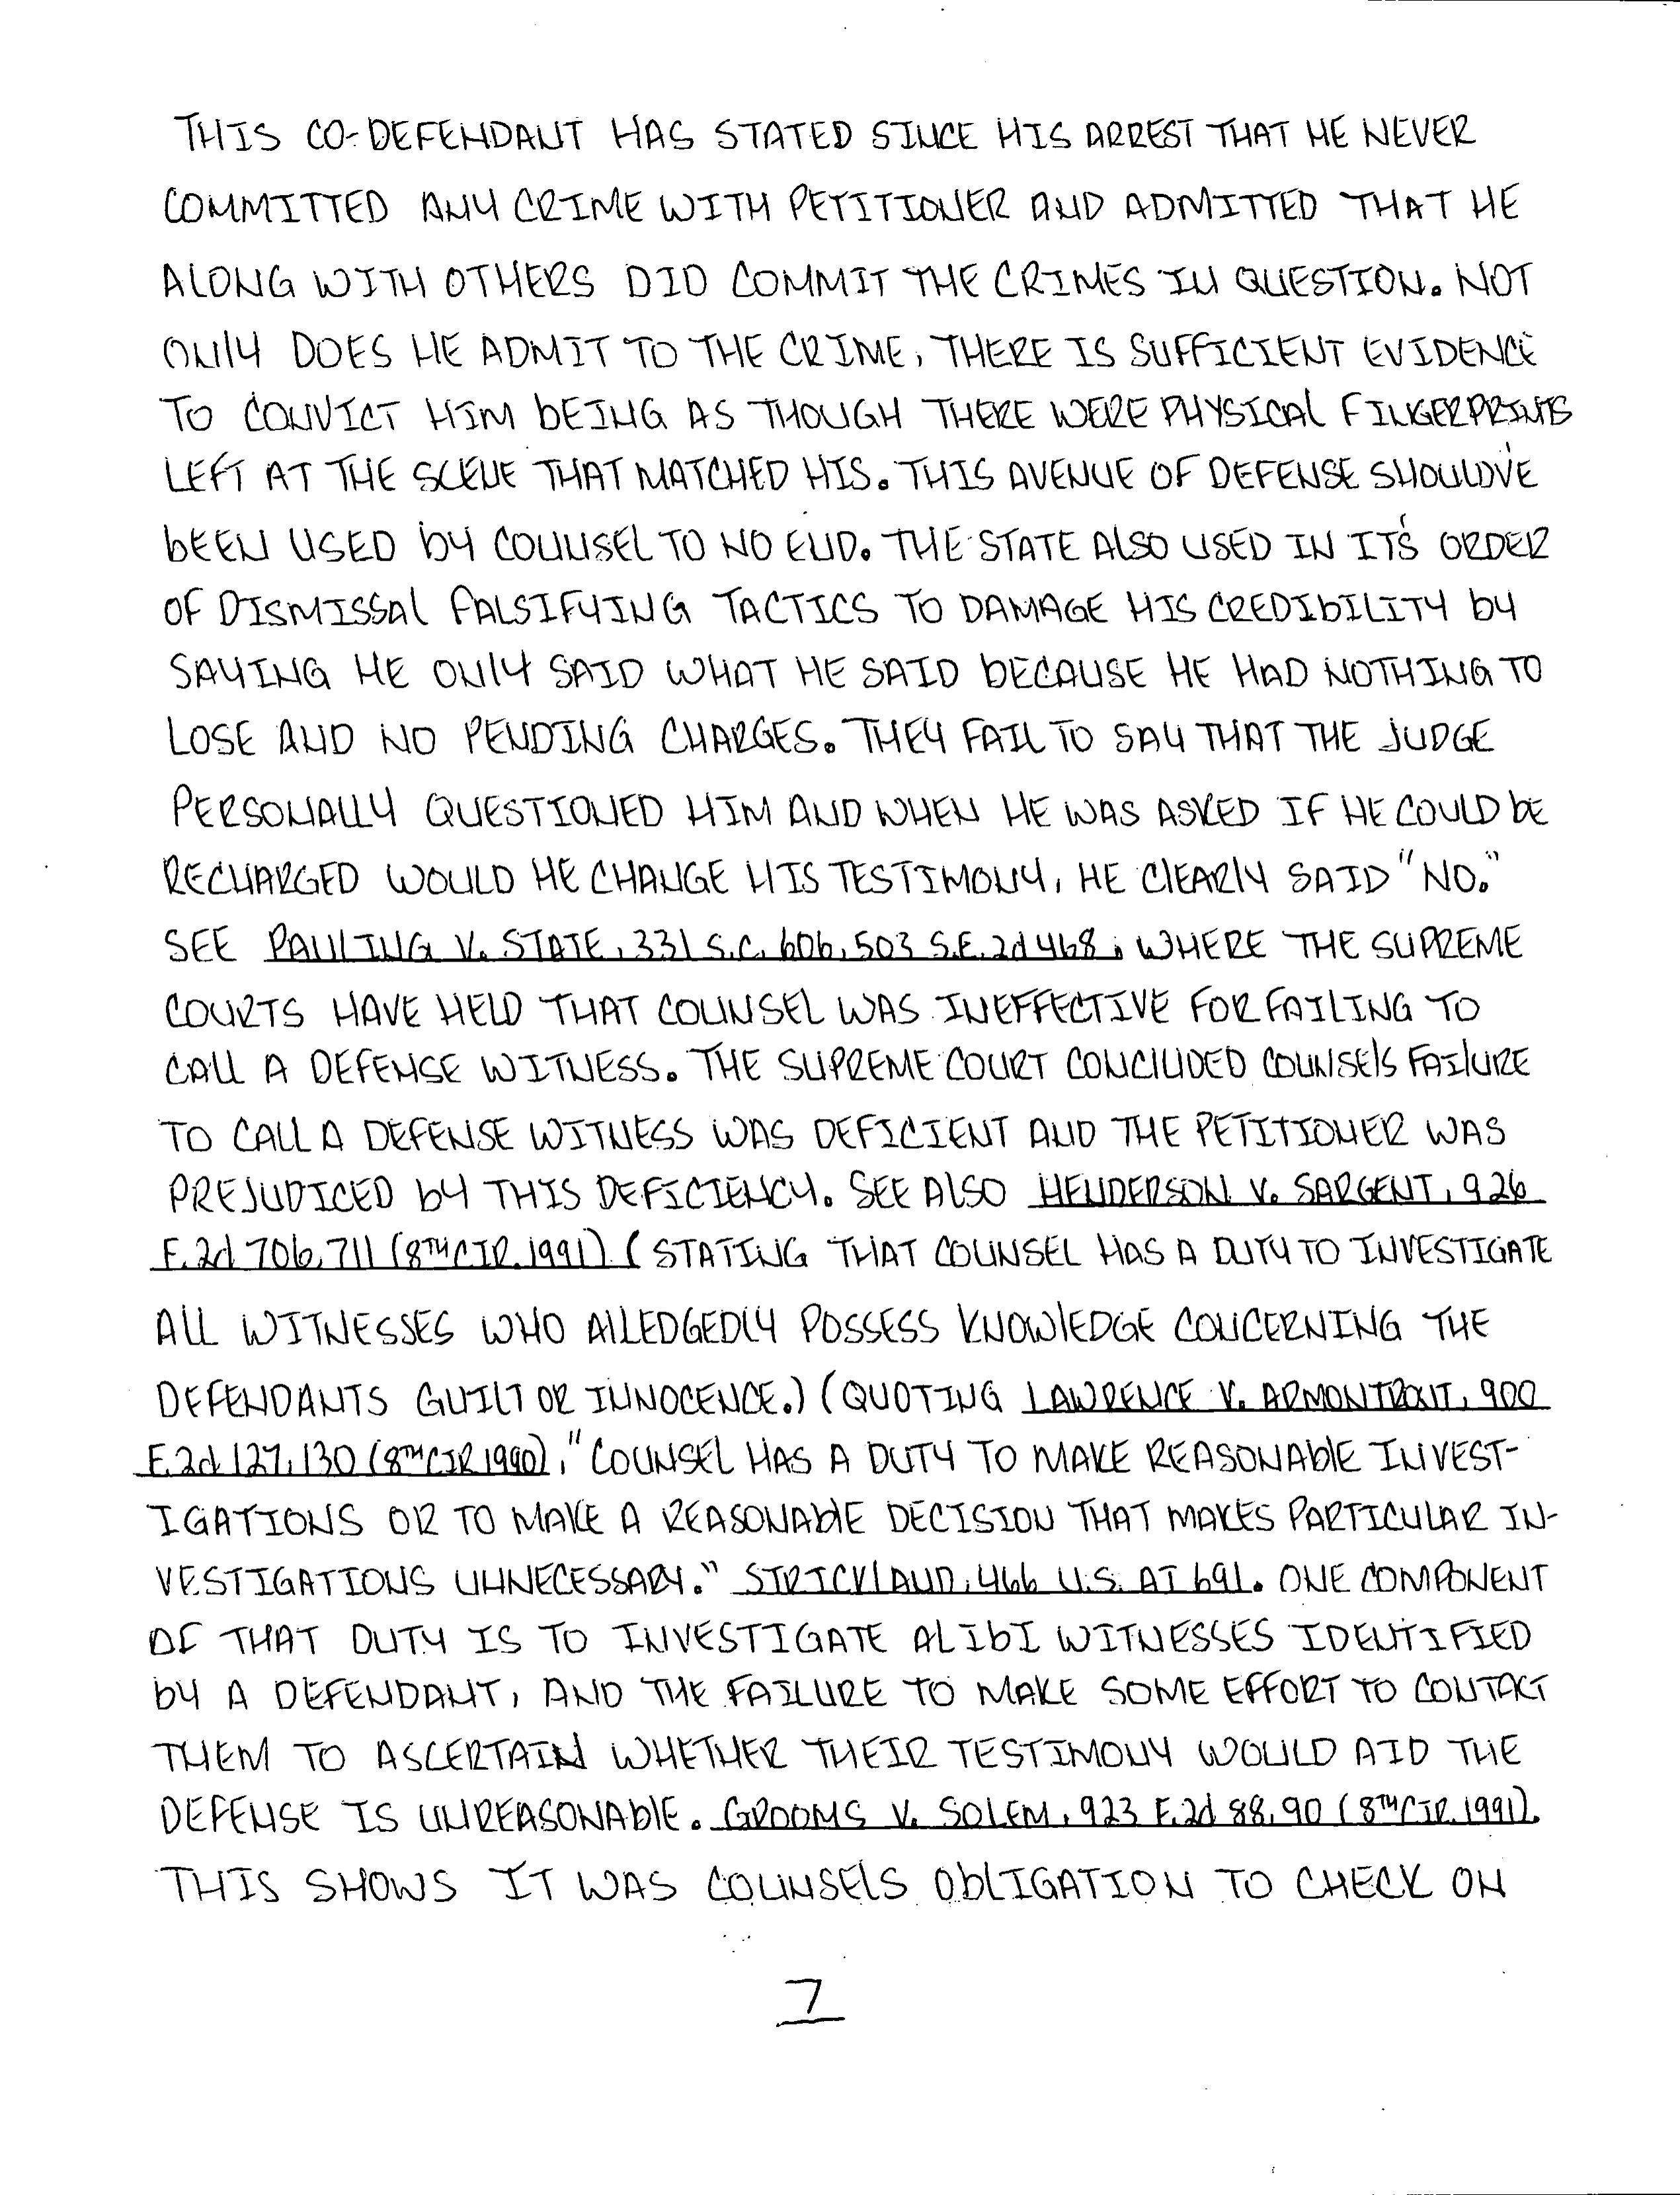 THIS CO-DEFENDANT HAS STATED SINCE HIS ARREST THAT HE NEVER
COMMITTED ANY CRIME WITH PETITIONER AND ADMITTED THAT HE
ALONG WITH OTHERS DID COMMIT THE CRIMES IN QUESTION. NOT
ONLY DOES HE ADMIT TO THE CRIME, THERE IS SUFFICIENT EVIDENCE
TO CONVICT HIM BEING AS THOUGH THERE WERE PHYSICAL FINGERPRINTS
LEFT AT THE SCENE THAT MATCHED HIS. THIS AVENUE OF DEFENSE SHOULD'VE
BEEN USED BY COUNSEL TO NO END. THE STATE ALSO USED IN IT'S ORDER
OF DISMISSAL FALSIFYING TACTICS TO DAMAGE HIS CREDIBILITY BY
SAYING HE ONLY SAID WHAT HE SAID BECAUSE HE HAD NOTHING TO
LOSE AND NO PENDING CHARGES. THEY FAIL TO SAY THAT THE JUDGE
PERSONALLY QUESTIONED HIM AND WHEN HE WAS ASKED IF HE COULD BE
RECHARGED WOULD HE CHANGE HIS TESTIMONY, HE CLEARLY SAID "NO."
SEE PAULING V. STATE, 331 S.C. 606, 503 S.E. 2d 468; WHERE THE SUPREME
COURTS HAVE HELD THAT COUNSEL WAS INEFFECTIVE FOR FAILING TO
CALL A DEFENSE WITNESS. THE SUPREME COURT CONCLUDED COUNSELS FAILURE
TO CALL A DEFENSE WITNESS WAS DEFICIENT AND THE PETITIONER WAS
PREJUDICED BY THIS DEFICIENCY. SEE ALSO HENDERSON V. SARGENT, 926
F. 2d 706, 711 (8TH CIR. 1991) (STATING THAT COUNSEL HAS A DUTY TO INVESTIGATE
ALL WITNESSES WHO ALLEDGEDLY POSSESS KNOWLEDGE CONCERNING THE
DEFENDANTS GUILT OR INNOCENCE.) (QUOTING LAWRENCE V. ARMONTROUT, 900
F. 2d 127, 130 (8TH CIR 1990), "COUNSEL HAS A DUTY TO MAKE REASONABLE INVEST-
IGATIONS OR TO MAKE A REASONABLE DECISION THAT MAKES PARTICULAR IN-
VESTIGATIONS UNNECESSARY." STRICKLAND, 466 U.S. AT 691. ONE COMPONENT
OF THAT DUTY IS TO INVESTIGATE ALIBI WITNESSES IDENTIFIED
BY A DEFENDANT, AND THE FAILURE TO MAKE SOME EFFORT TO CONTACT
THEM TO ASCERTAIN WHETHER THEIR TESTIMONY WOULD AID THE
DEFENSE IS UNREASONABLE. GROOMS V. SOLEM, 923 F. 2d 88, 90 (8TH CIR. 1991).
THIS SHOWS IT WAS COUNSELS OBLIGATION TO CHECK ON
7